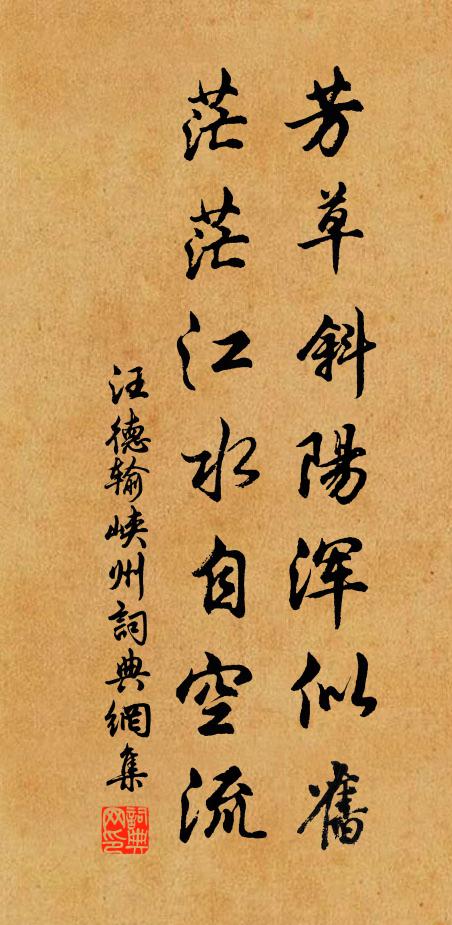 芳草斜陽浑似舊
茫茫江水自空流
汪德输峡州詞典網集
詞典网印